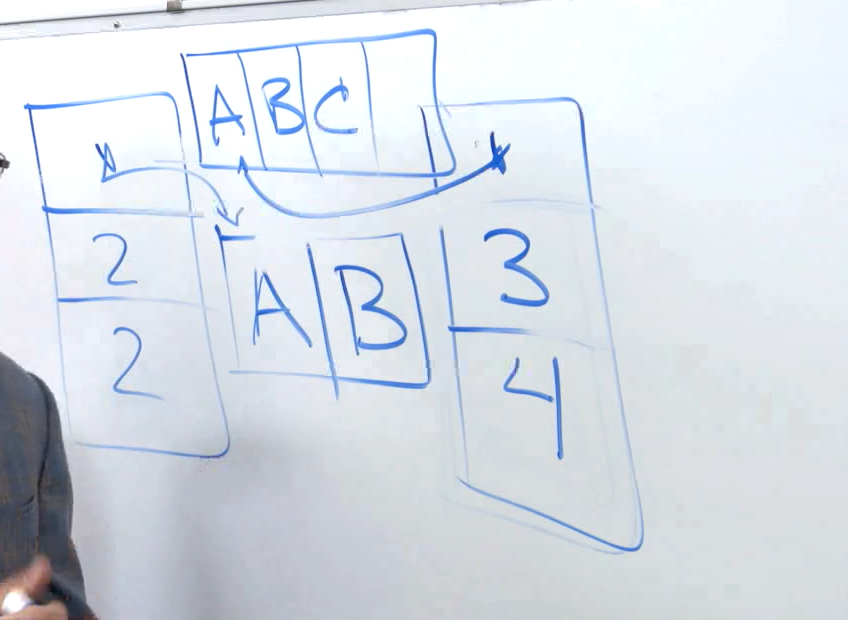 A B C
2
2
A B
3
4